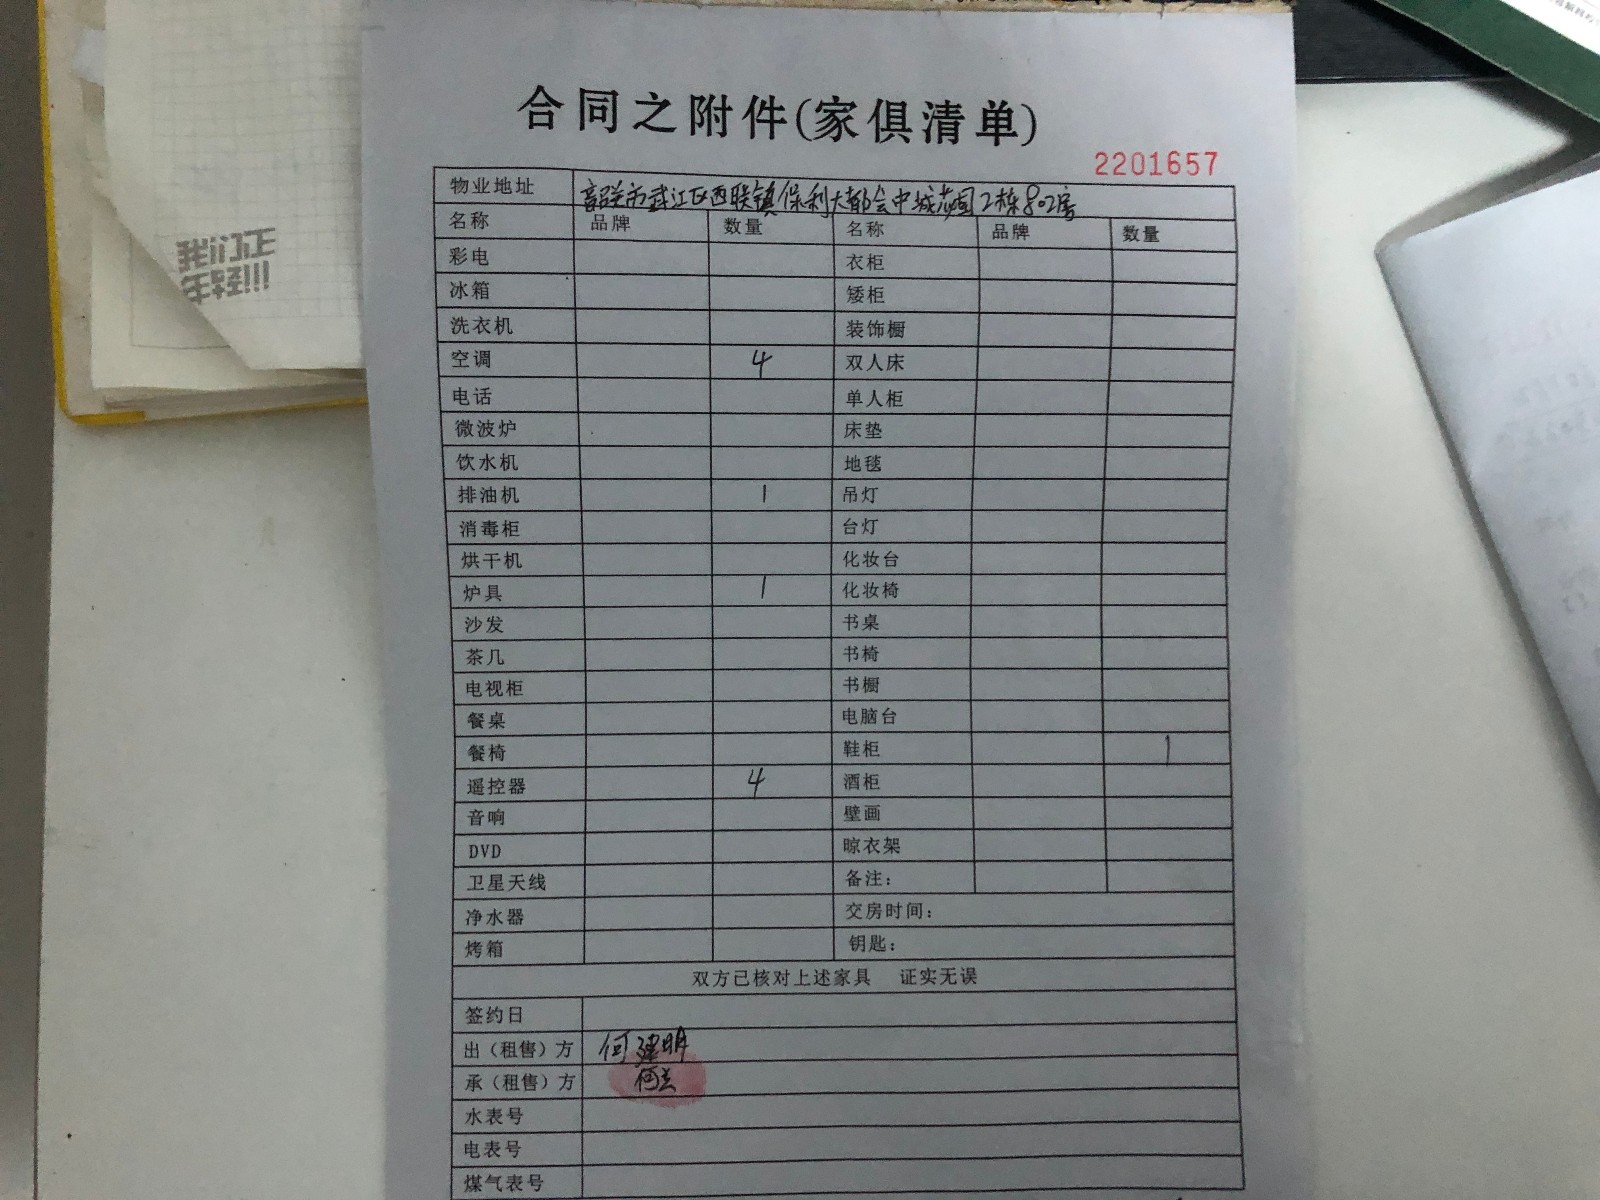 合同之附件(家俱清单)
2201657
物业地址 韶关市武江区西联镇保利大都会中城花园2栋802房
名称 品牌 数量 名称 品牌 数量
彩电 衣柜
冰箱 矮柜
洗衣机 装饰橱
空调 4 双人床
电话 单人柜
微波炉 床垫
饮水机 地毯
排油机 1 吊灯
消毒柜 台灯
烘干机 化妆台
炉具 1 化妆椅
沙发 书桌
茶几 书椅
电视柜 书橱
餐桌 电脑台
餐椅 鞋柜 1
遥控器 4 酒柜
音响 壁画
DVD 晾衣架
卫星天线 备注：
净水器 交房时间：
烤箱 钥匙：
双方已核对上述家具 证实无误
签约日
出（租售）方 何建明
承（租售）方 何兰
水表号
电表号
煤气表号
我们正
年轻!!!